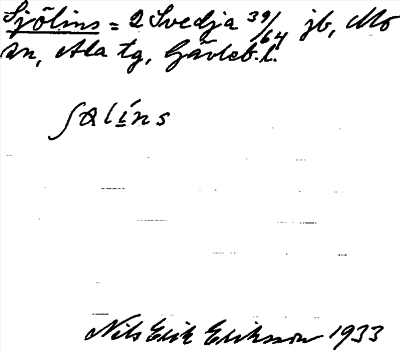 Sjölins = 2 Svedja 39/64 jb, Mo
sn, Ala tg, Gävleb. l.
ʃɑlíns
Nils Erik Eriksson 1933